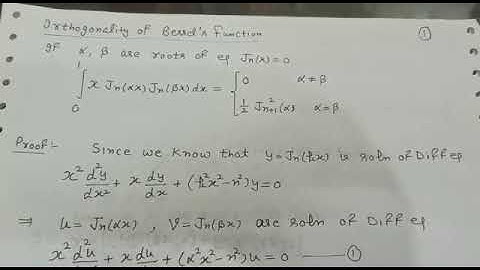 Orthogonality of Bessel's Function ①
If α, β are roots of eq Jn(x)=0
∫₀¹ x Jn(αx) Jn(βx) dx = { 0 α≠β
½ J²n+1(α) α=β
Proof:- Since we know that y=Jn(kx) is soln of Diff eq
x² d²y/dx² + x dy/dx + (k²x²-n²)y=0
⇒ u=Jn(αx), V=Jn(βx) are soln of Diff eq.
x² d²u/dx² + x du/dx + (α²x²-n²)u = 0 —①